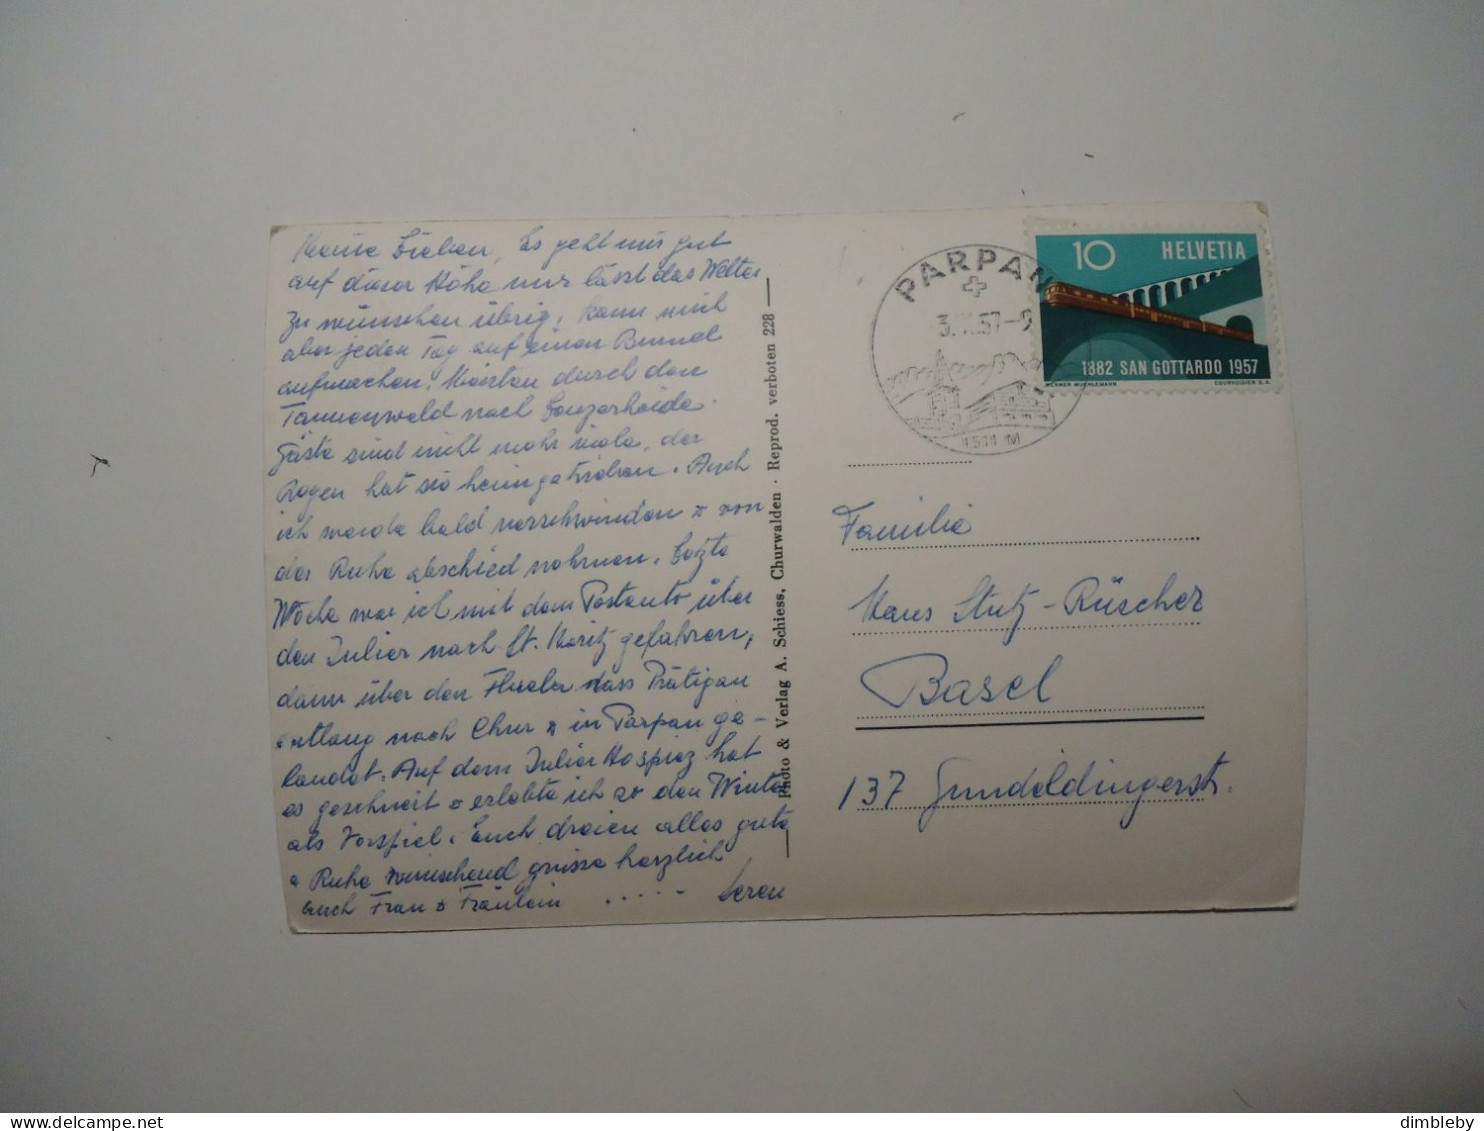 Meine Lieben, Es geht mir gut
auf dieser Höhe nur lässt das Wetter
zu wünschen übrig, kann mich
aber jeden Tag auf einen Bummel
aufmachen. Meistens durch den
Tannenwald nach Lenzerheide.
Gäste sind nicht mehr viele, der
Regen hat sie heimgetrieben. Auch
ich werde bald verschwinden & von
der Ruhe abschied nehmen. Letzte
Woche war ich mit dem Postauto über
den Julier nach St. Moritz gefahren,
dann über den Flüela dass Prätigau
entlang nach Chur & in Parpan ge-
landet. Auf dem Julier Hospiz hat
es geschneit & erlebte ich so den Winter
als Vorspiel. Euch dreien alles gute
& Ruhe wünschend grüsse herzlich
auch Frau & Fräulein .....
Photo & Verlag A. Schiess, Churwalden · Reprod. verboten 228
PARPAN
1511 M
10 HELVETIA
1882 SAN GOTTARDO 1957
WERNER MUEHLEMANN COURVOISIER S.A.
Familie
Hans Stutz-Rüscher
Basel
137 Gundeldingerstr.
dimbleby
delcampe.net